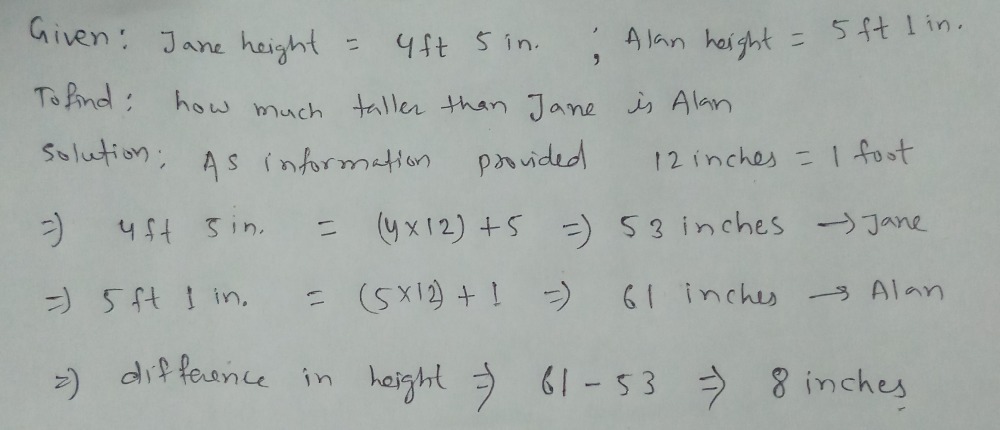 Given: Jane height = 4ft 5 in. ; Alan height = 5 ft 1 in.
To find: how much taller than Jane is Alan
Solution: As information provided 12 inches = 1 foot
⇒ 4ft 5 in. = (4×12) + 5 ⇒ 53 inches → Jane
⇒ 5 ft 1 in. = (5×12) + 1 ⇒ 61 inches → Alan
⇒ difference in height ⇒ 61 - 53 ⇒ 8 inches